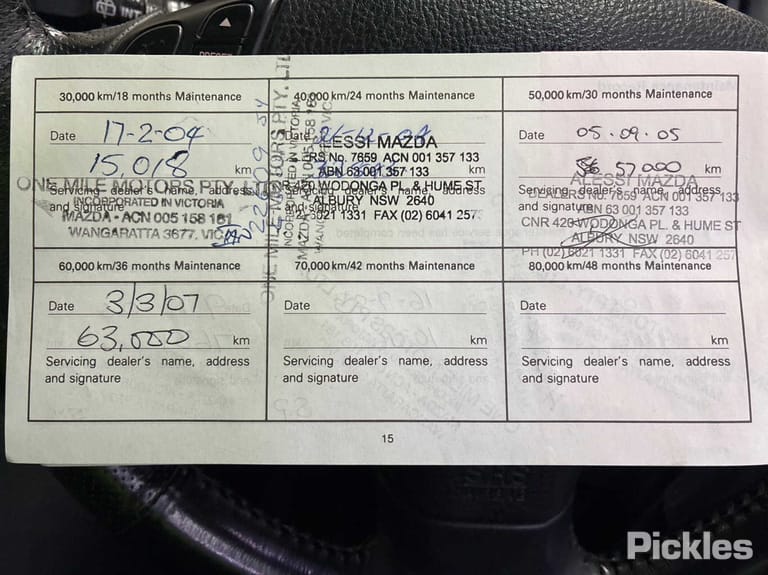 30,000 km/18 months Maintenance
Date 17-2-04
15,018 km
Servicing dealer's name, address
and signature
ONE MILE MOTORS PTY. LTD
INCORPORATED IN VICTORIA
MAZDA - ACN 005 158 181
WANGARATTA 3677. VIC.
40,000 km/24 months Maintenance
Date
km
Servicing dealer's name, address
and signature
ONE MILE MOTORS PTY. LTD
INCORPORATED IN VICTORIA
MAZDA - ACN 005 158 181
ALESSI MAZDA
No. 7659 ACN 001 357 133
ABN 63 001 357 133
CNR 420 WODONGA PL. & HUME ST
ALBURY NSW 2640
6021 1331 FAX (02) 6041 257
50,000 km/30 months Maintenance
Date 05.09.05
57000 km
Servicing dealer's name, address
and signature
ALESSI MAZDA
DEALERS No. 7659 ACN 001 357 133
ABN 63 001 357 133
CNR 420 WODONGA PL. & HUME ST
ALBURY NSW 2640
PH (02) 6021 1331 FAX (02) 6041 257
60,000 km/36 months Maintenance
Date 3/3/07
63,000 km
Servicing dealer's name, address
and signature
70,000 km/42 months Maintenance
Date
km
Servicing dealer's name, address
and signature
80,000 km/48 months Maintenance
Date
km
Servicing dealer's name, address
and signature
15
Pickles